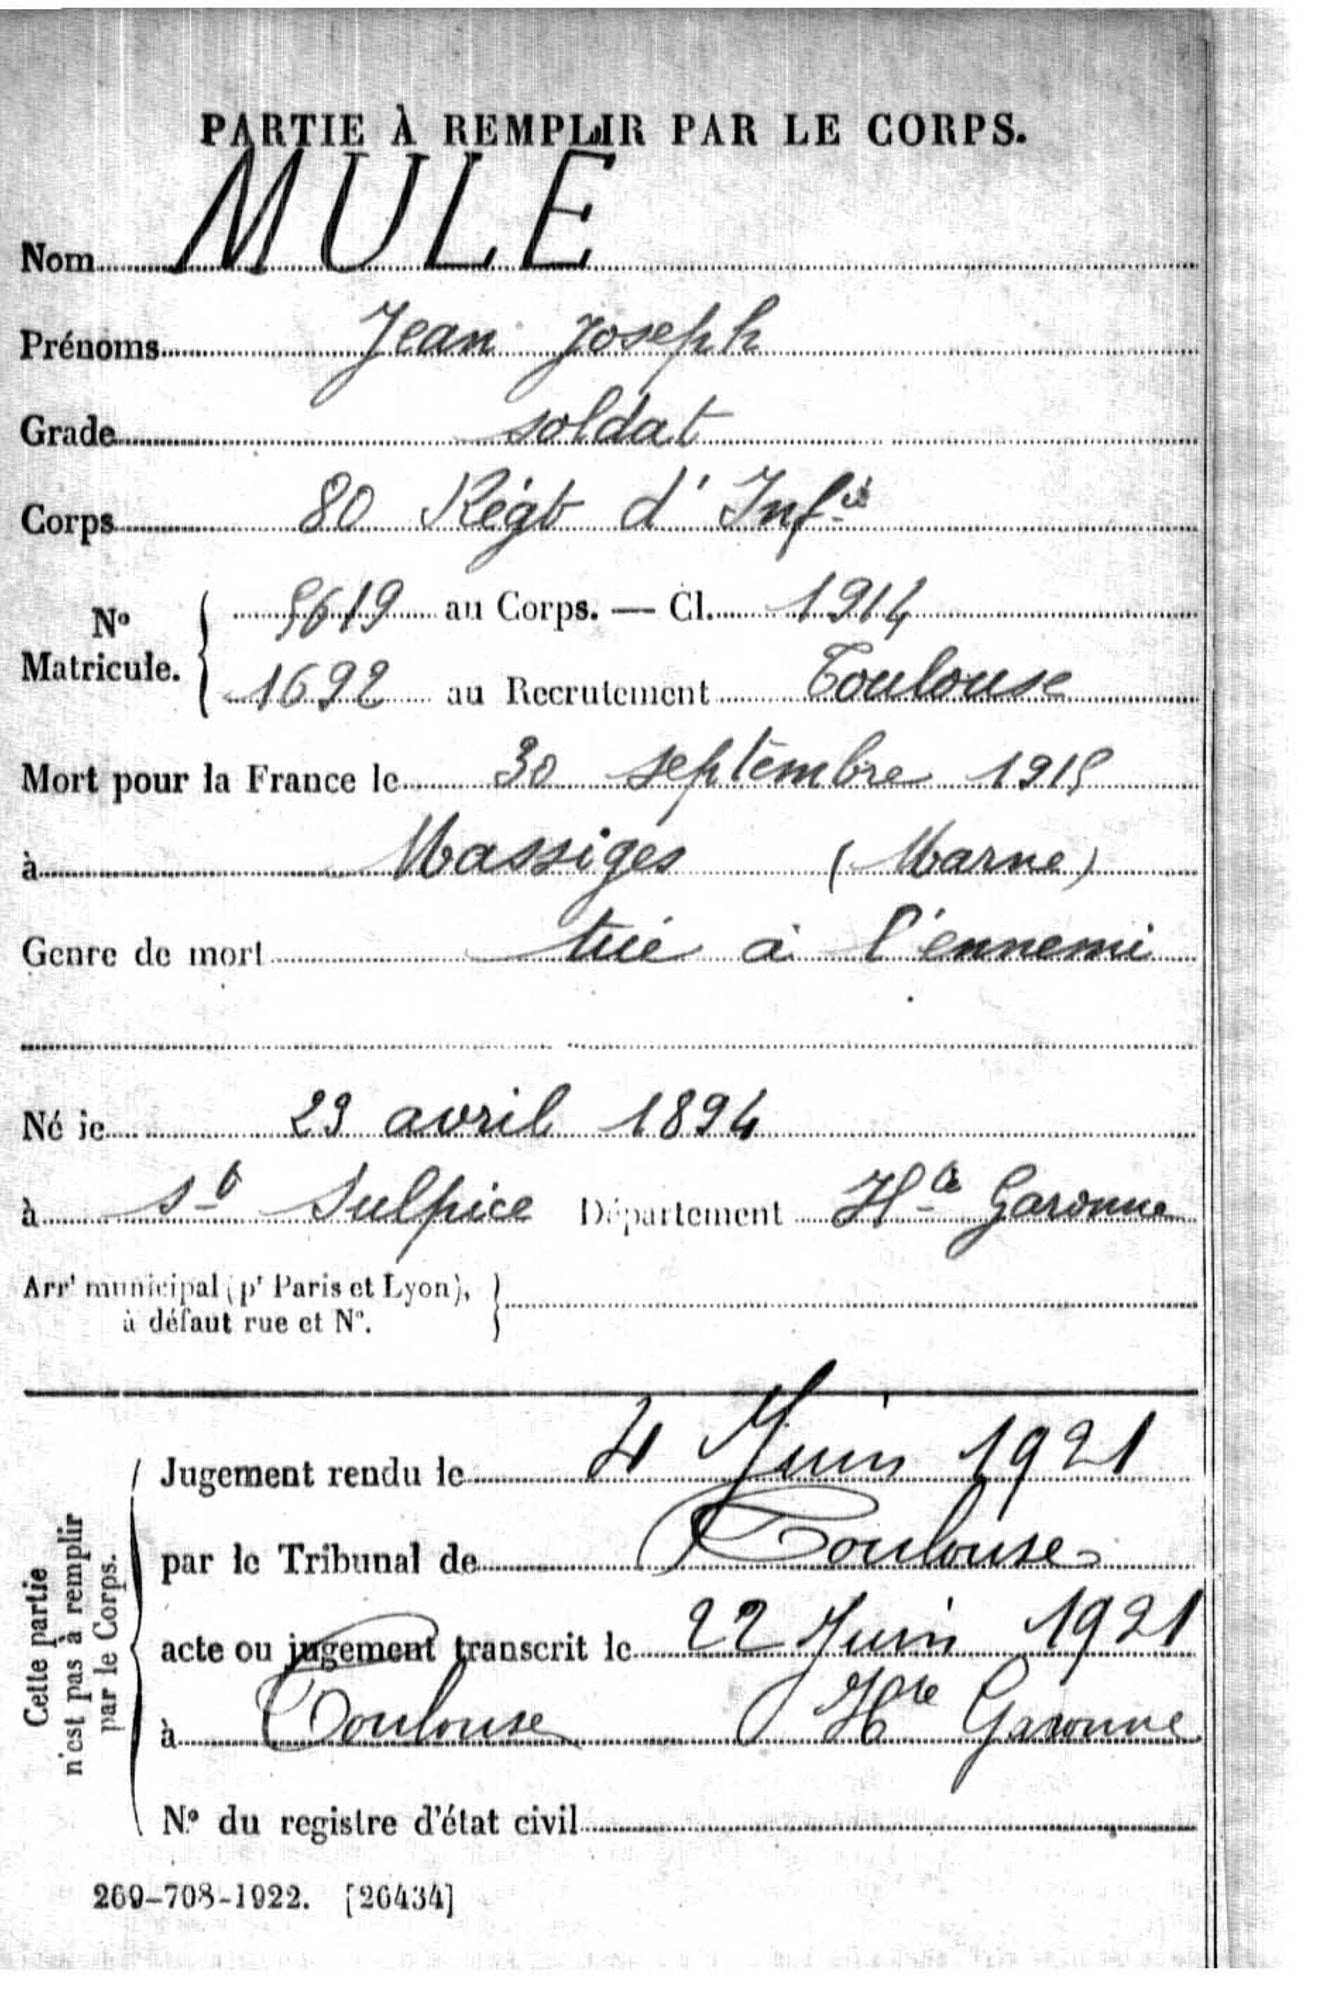 PARTIE À REMPLIR PAR LE CORPS.
Nom MULE
Prénoms Jean Joseph
Grade soldat
Corps 80 Régt d'Inf.ie
No Matricule. { 5619 au Corps. — Cl. 1914
1692 au Recrutement Toulouse
Mort pour la France le 30 septembre 1915
à Massiges (Marne)
Genre de mort tué à l'ennemi
Né le 23 avril 1894
à St Sulpice Département Hte Garonne
Arrt municipal (pr Paris et Lyon),
à défaut rue et No.
Cette partie
n'est pas à remplir
par le Corps.
Jugement rendu le 4 Juin 1921
par le Tribunal de Toulouse
acte ou jugement transcrit le 22 Juin 1921
à Toulouse Hte Garonne
No du registre d'état civil
269-708-1922. [26434]